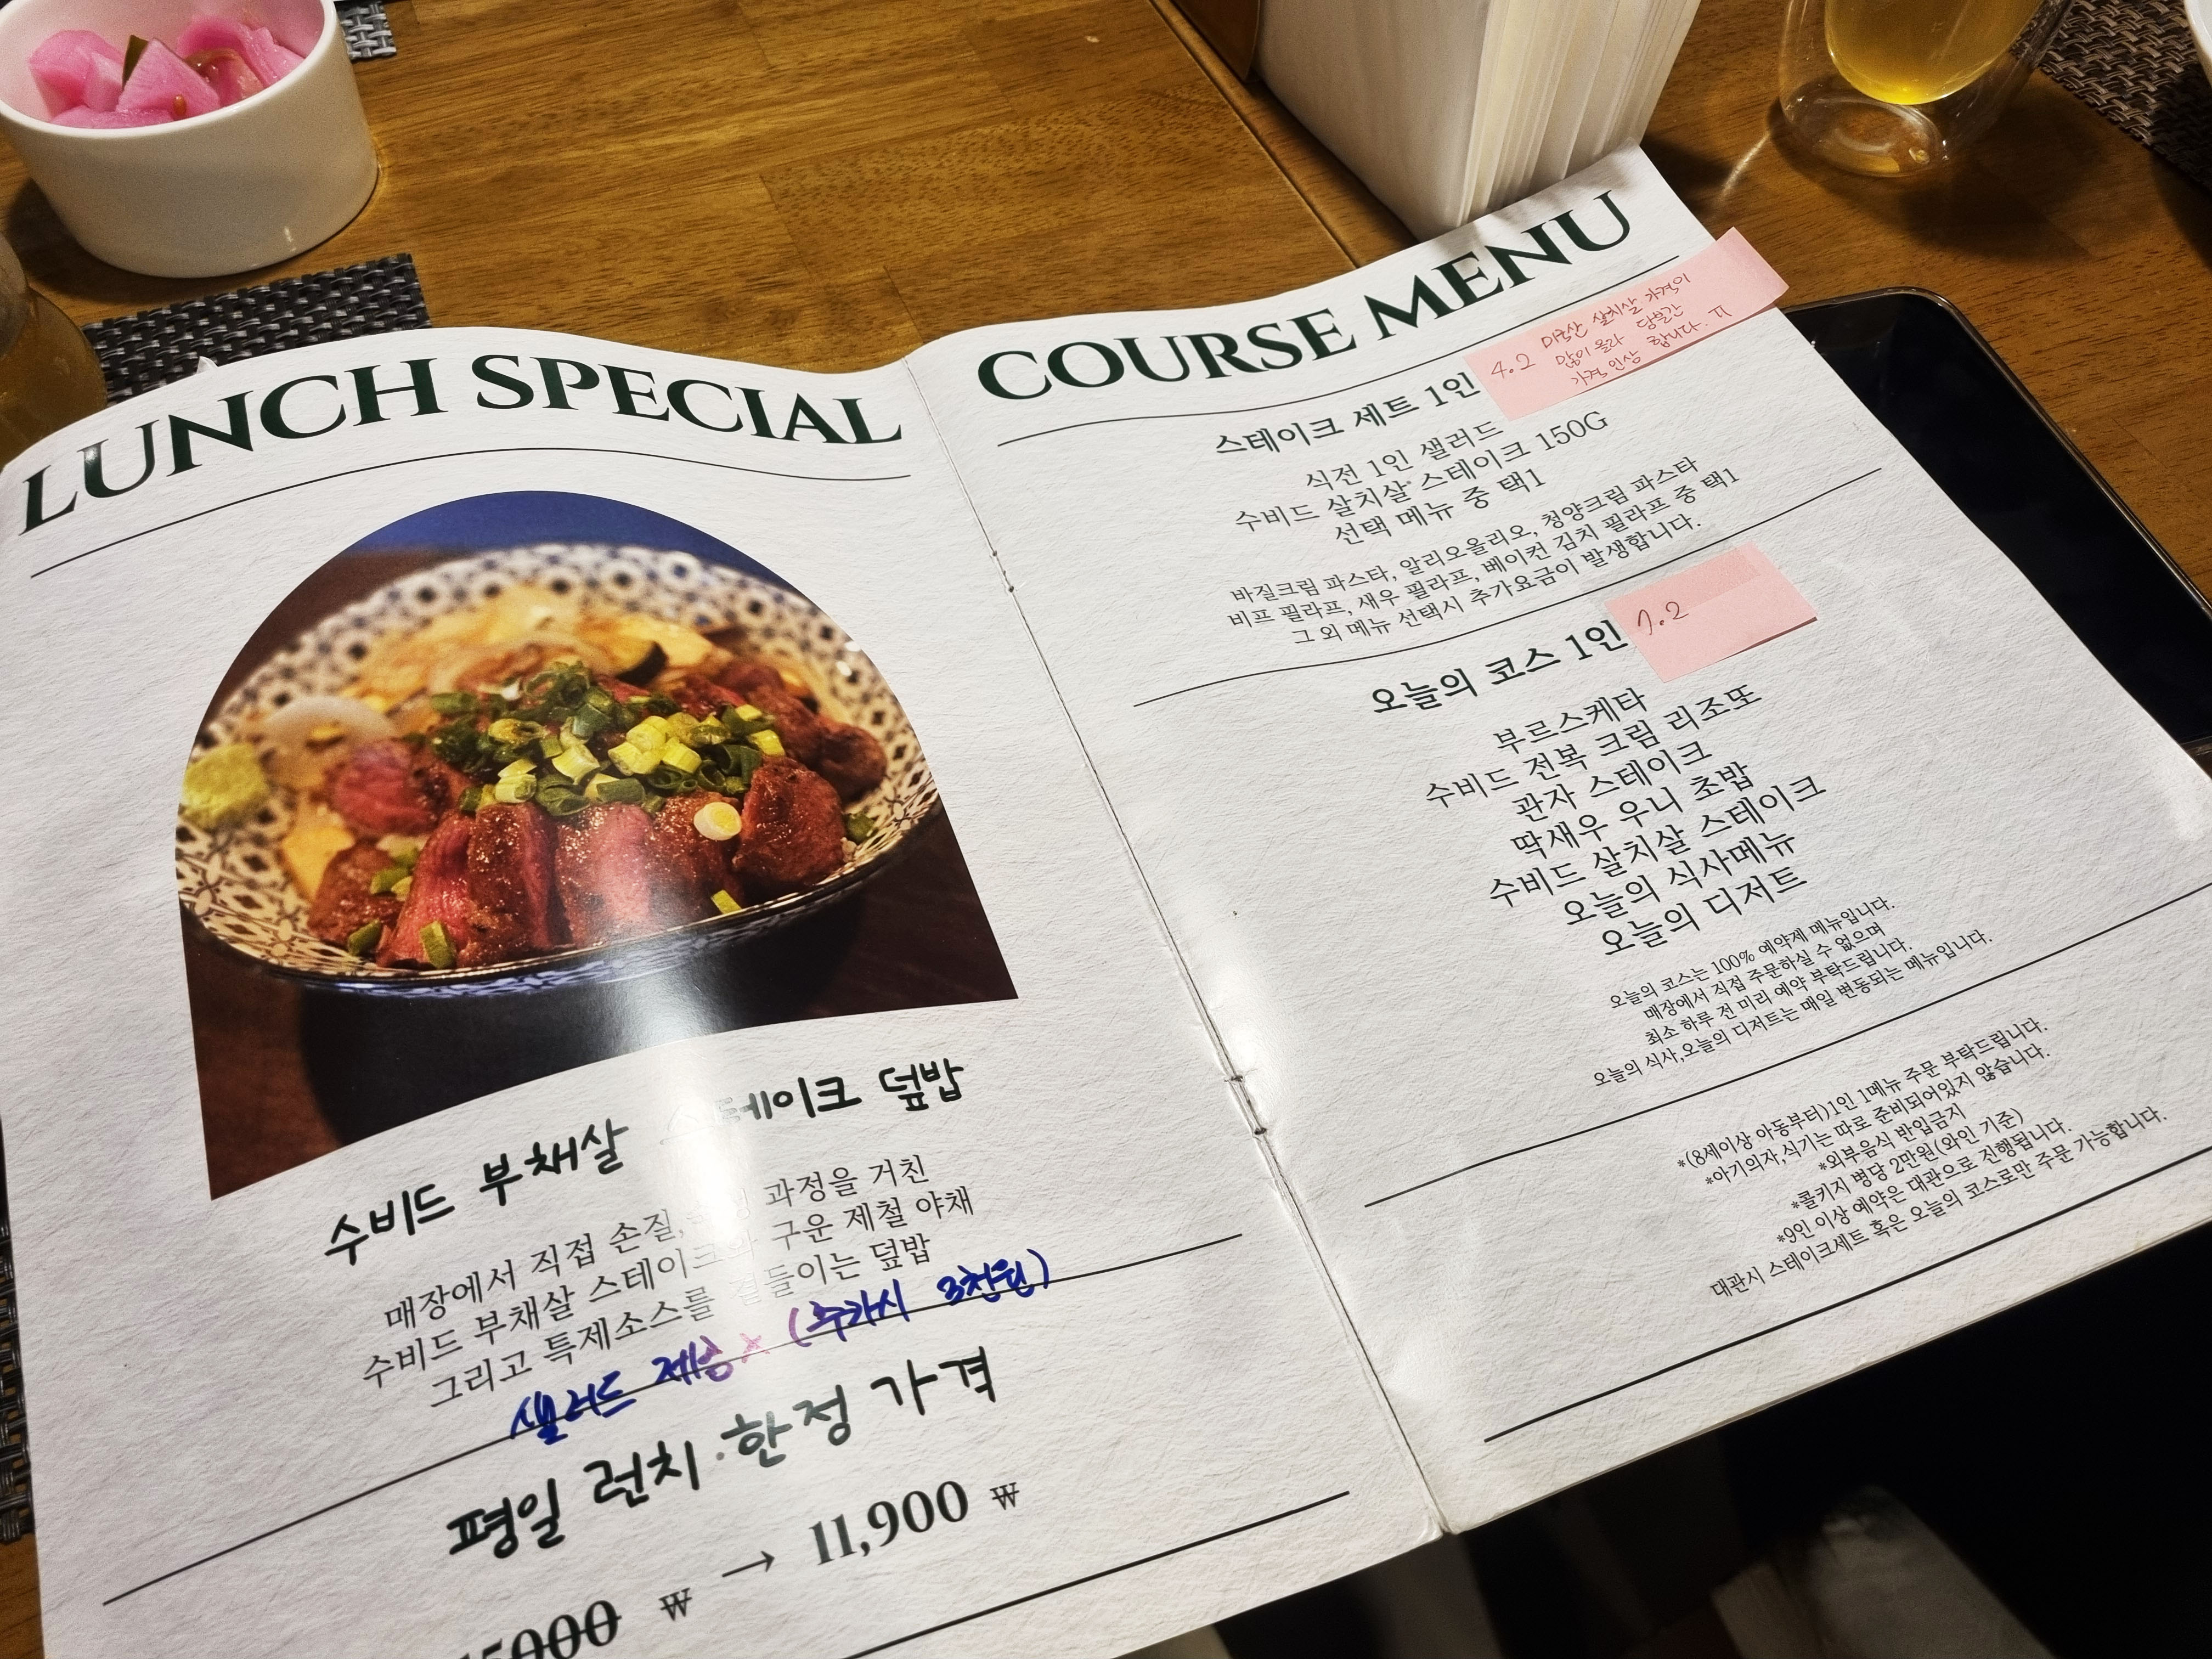 LUNCH SPECIAL
수비드 부채살 스테이크 덮밥
매장에서 직접 손질, 과정을 거친
수비드 부채살 스테이크와 구운 제철 야채
그리고 특제소스를 곁들이는 덮밥
샐러드 제공 X (추가시 3천원)
평일 런치 한정 가격
15000 ₩ → 11,900 ₩
COURSE MENU
스테이크 세트 1인
4.2
미국산 살치살 가격이
많이 올라 당분간
가격 인상 합니다. ㅠ
식전 1인 샐러드
수비드 살치살 스테이크 150G
선택 메뉴 중 택1
바질크림 파스타, 알리오올리오, 청양크림 파스타
비프 필라프, 새우 필라프, 베이컨 김치 필라프 중 택1
그 외 메뉴 선택시 추가요금이 발생합니다.
오늘의 코스 1인
7.2
부르스케타
수비드 전복 크림 리조또
관자 스테이크
딱새우 우니 초밥
수비드 살치살 스테이크
오늘의 식사메뉴
오늘의 디저트
오늘의 코스는 100% 예약제 메뉴입니다.
매장에서 직접 주문하실 수 없으며
최소 하루 전 미리 예약 부탁드립니다.
오늘의 식사,오늘의 디저트는 매일 변동되는 메뉴입니다.
*(8세이상 아동부터)1인 1메뉴 주문 부탁드립니다.
*아기의자,식기는 따로 준비되어있지 않습니다.
*외부음식 반입금지
*콜키지 병당 2만원(와인 기준)
*9인 이상 예약은 대관으로 진행됩니다.
대관시 스테이크세트 혹은 오늘의 코스로만 주문 가능합니다.